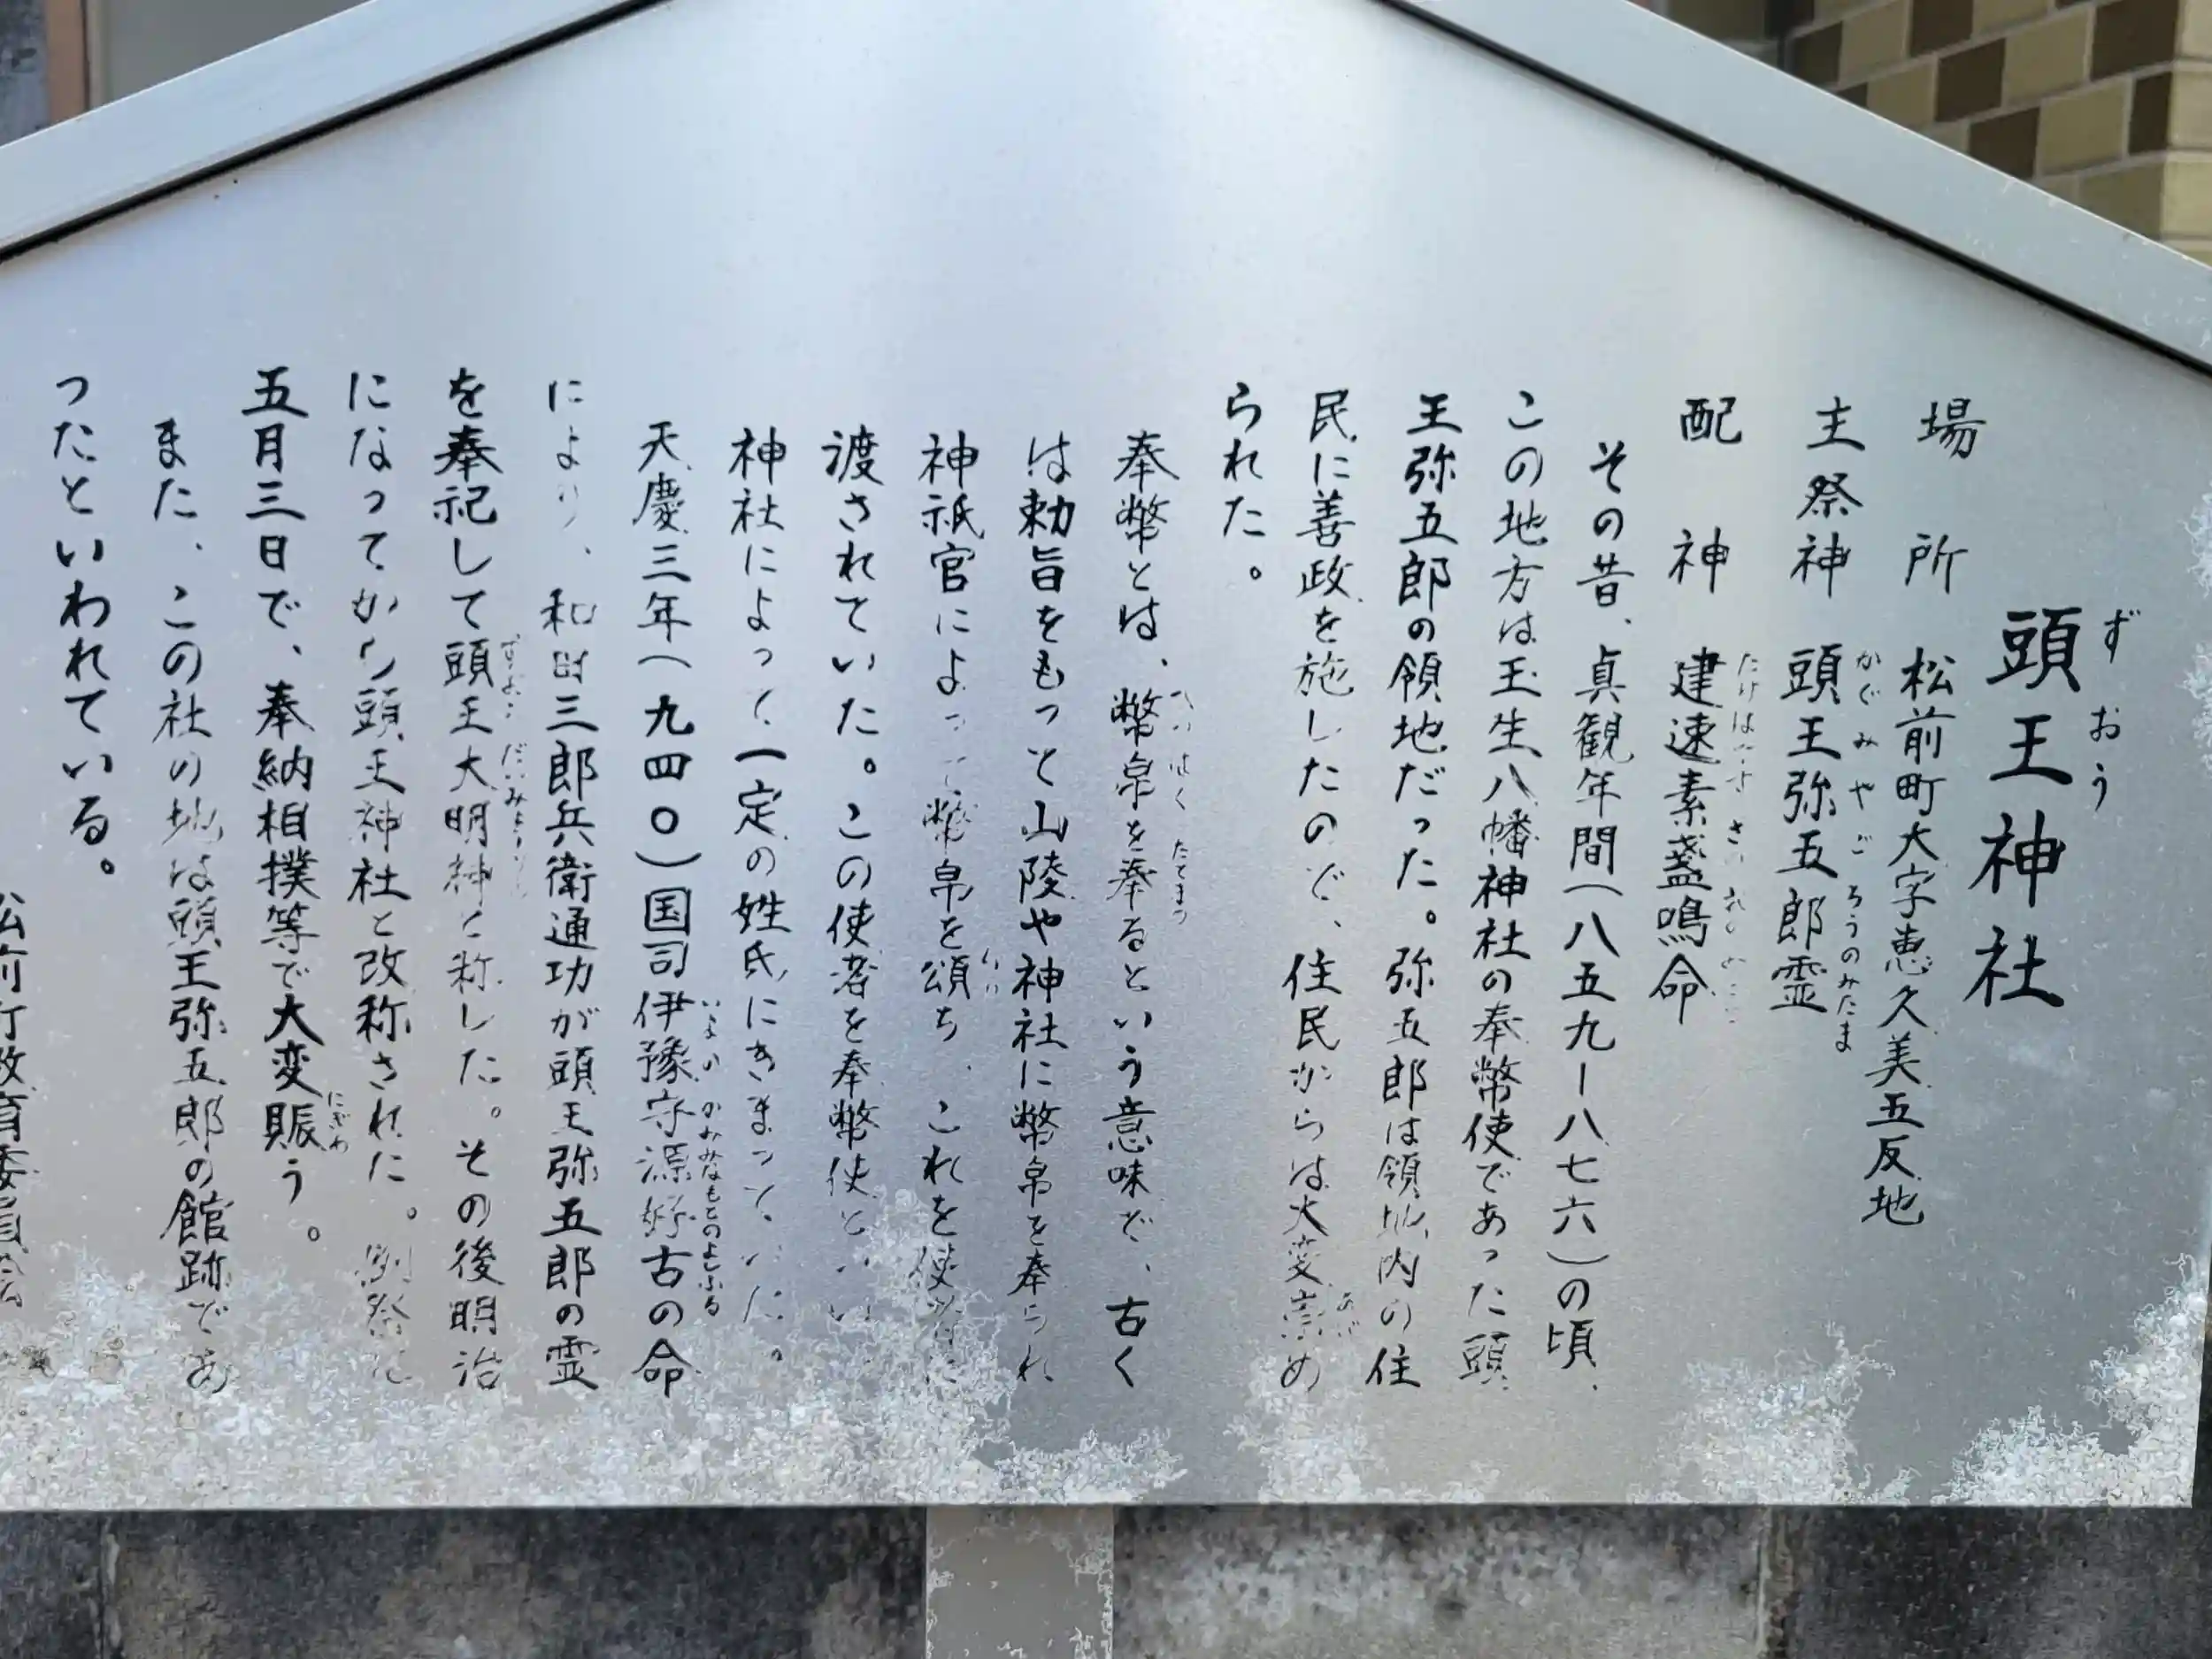 頭王神社
ずおう
場所 松前町大字恵久美五反地
主祭神 頭王弥五郎霊
かぐみやごろうのみたま
配神 建速素盞鳴命
その昔、貞観年間(八五九ー八七六)の頃、
この地方は玉生八幡神社の奉幣使であった頭
王弥五郎の領地だった。弥五郎は領地内の住
民に善政を施したので、住民からは大変崇め
られた。
奉幣とは、幣帛を奉るという意味で、古く
は勅旨をもって山陵や神社に幣帛を奉られ
神祇官によって幣帛を頒ち、これを使者に
渡されていた。この使者を奉幣使といい、
神社によって、一定の姓氏にきまっていた。
天慶三年(九四〇)国司伊豫守源好古の命
いよのかみみなもとのよしふる
により、和田三郎兵衛通功が頭王弥五郎の霊
を奉祀して頭王大明神と称した。その後明治
になってから頭王神社と改称された。例祭は
五月三日で、奉納相撲等で大変賑う。
にぎわ
また、この社の地は頭王弥五郎の館跡であ
ったといわれている。